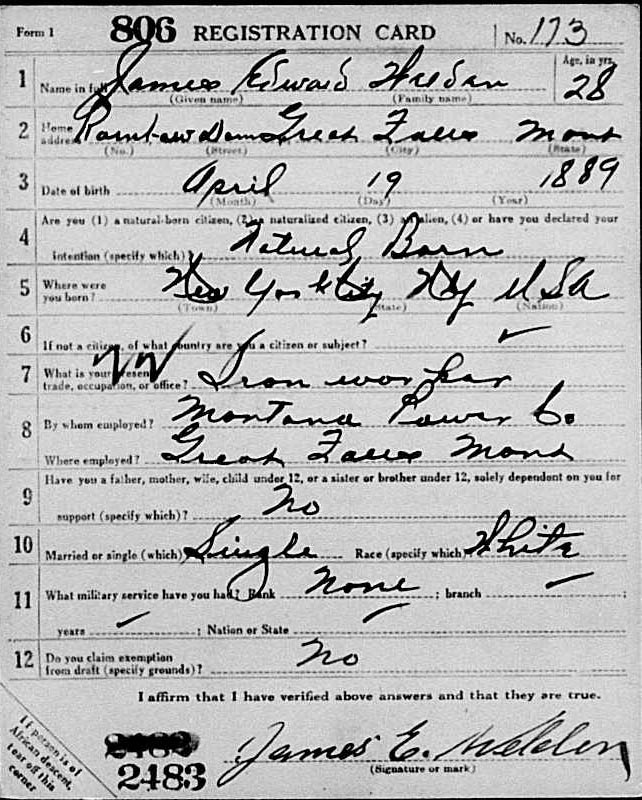 Form 1 806 REGISTRATION CARD No. 173
1 Name in full James Edward Weldon Age, in yrs. 28
(Given name) (Family name)
2 Home address Rainbow Dam Great Falls Mont
(No.) (Street) (City) (State)
3 Date of birth April 19 1889
(Month) (Day) (Year)
4 Are you (1) a natural-born citizen, (2) a naturalized citizen, (3) an alien, (4) or have you declared your
intention (specify which)? Natural Born
5 Where were you born? New York City NY USA
(Town) (State) (Nation)
6 If not a citizen, of what country are you a citizen or subject?
7 What is your present trade, occupation, or office? Iron worker
8 By whom employed? Montana Power Co
Where employed? Great Falls Mont
9 Have you a father, mother, wife, child under 12, or a sister or brother under 12, solely dependent on you for
support (specify which)? No
10 Married or single (which) Single Race (specify which) White
11 What military service have you had? Rank None ; branch ;
years ; Nation or State
12 Do you claim exemption from draft (specify grounds)? No
I affirm that I have verified above answers and that they are true.
If person is of
African descent,
tear off this
corner
2483
2483
James E. Weldon
(Signature or mark)